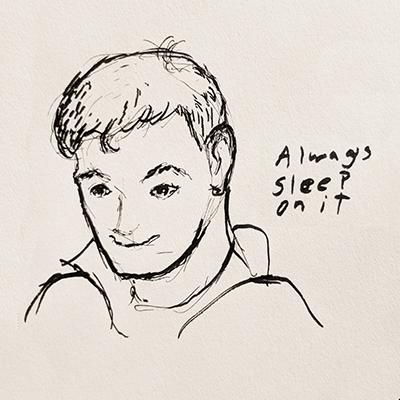 Always
sleep
on it